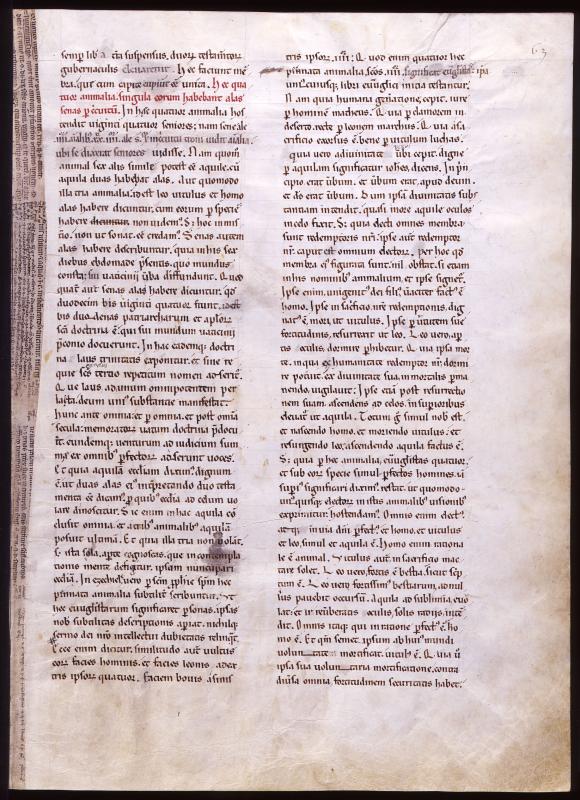 semp lib a suspensus, duorū testamtorū
gubernaculis Hec faciunt mē
bra, qui cum capite Hec qua
tuor animalia, singula eorum habebant alas
senas p Inhīs quatuor animalia hos
tendit viginti quatuor seniores; nam senę alę
iiii aialib; alę
ubi se dixerat seniores vidisse. Nam quom̄
animal sex alis simile potest eē aquilę, cū
aquila duas habeat alas. Aut quomodo
illa tria animalia, id est leo vitulus et homo
alas habere dicuntur, cum eorum p specię
habere non videm; S; hoc inmis
tio, non ut sonat, et credam; Senas autem
alas habere describuntur, quia inhis sex
diebus ebdomadę psentis, quo mundus
consta, sui vaticinii v̄ba diffundunt. Qvod
quat aut senas alas habere dicuntur, qd
duodecim bis viginti quatuor fiunt, id est
bis duodenas patriarcharum et aplorū
scā doctrina ē, qui sui mundum vaticinij
pconio docuerunt. In hac eademq; doctri
na laus trinitatis exponitur, et sine re
quię scs tertio repeticum nomen ad seritē.
Que laus ad unum omnipotentem per
lata, deum unī substantiae manifestat.
hunc ante omnia, et p omnia, et post om̄ia
secula, memoratorū vatum doctrina pdocu
it, eundemq; venturum ad iudicium sum
ma ex omnib; pfectorū adserunt voces.
Et quia aquilā ecclam diximq; dignum
ē, ut duas alas ei; interpretando duo testa
menta eē dicam; p quib; ecclia ad celum vo
lare dinoscitur. Sic enim in hac aquila cō
clusit omnia, et aliis animalib; aquilā
posuit ultimā. Et quia illa tria non volāt,
s; ista sola, apte cognoscas, que in contempla
tionis mente defigitur, ipsam nuncupari
eccliā. In ezechiel vero p scm pphic spm hęc
pennata animalia subtilit scribuntur. Ut
hęc euuglistarum significaret psonas, ipsas
nob subtilitas descriptionis apiat, nichilq;
sermo dei nro intellectui dubietatis relinqt.
Ecce enim dicitur. similitudo aut vultus
eorū facies hominis, et facies leonis adex
tris ipsorū quatuor. faciem bovis asinis
tris ipsorū, iiii; Quod enim quatuor hęc
pennata animalia, scōs iiii significat euglistas ipsa
uniuscuiusq; libri euuglii inicia testantur.
Nam quia humana gnatione, cepit, iure
p hominem matheus. Quia p clamorem in
deserto, recte p leonem marchus. Quia asa
crificio exorsus ē, bene p vitulum luchas.
Quia vero adivinitate ūbi cępit, digne
p aquilam significatur iohes, dicens. In prin
cipio erat v̄bum, et v̄bum erat apud deum,
et ds erat v̄bum. Dum ipsā divinitatis subs
tantiam intendit, quasi more aquilę oculos
insole fixit. S; quia electi omnes membra
sunt redemptoris nri, ipse aut redemptor
nr, caput est omnium electorū, per hoc qd
membra ei; figurata sunt, nil obstat, si etiam
inhis nominib; animalium, et ipse signet.
Ipse enim, unigenit; dei fili; v̄aciter fact; ē
homo. Ipse in sacrificio nrē redemptionis, dig
nat; ē mori, ut vitulus. Ipse p v̄tutem suę
fortitudinis, resurrexit ut leo. Leo vero, ap
tis oculis, dormire phibetur. Quia ipsa mor
te, in qua ex humanitate redemptor nr dormi
re potuit, ex divinitate sua, inmortalis pma
nendo, vigilavit. Ipse etiā post resurrectio
nem suam, ascendens ad celos, insuperioribus
elevat; ut aquila. Totum g simul nob est,
et nascendo homo, et moriendo vitulus, et
resurgendo leo, ascendendo aquila factus ē.
S; quia p hęc animalia, euuglistas quatuor,
et sub eorū specie simul pfectos homines, iā
supi; significari dixim; restat, ut quomodo
unusquisq; electorū in istis animalib; visionib;
exprimatur, hostendam; Omnis enim elect;
atq; in via dni pfect; et homo, et vitulus
et leo, simul et aquila ē. Homo enim rationa
le ē animal. Vitulus aut in sacrificio mac
tare solet. Leo vero, fortis ē bestia, sicut scp
tum ē. Leo vero fortissim; bestiarum, ad nul
lius pavebit occursū. Aquila ad sublimia evo
lat, et irreūberatis oculis, solis radiis, intē
dit. Omnis itaq; qui in ratione pfect; ē, ho
mo ē. Et qm̄ semet ipsum ab hui; mundi
voluntate mortificat, vitul; ē. Quia ū
ipsa sua voluntaria mortificatione, contra
diūsa omnia, fortitudinem securitatis habet,